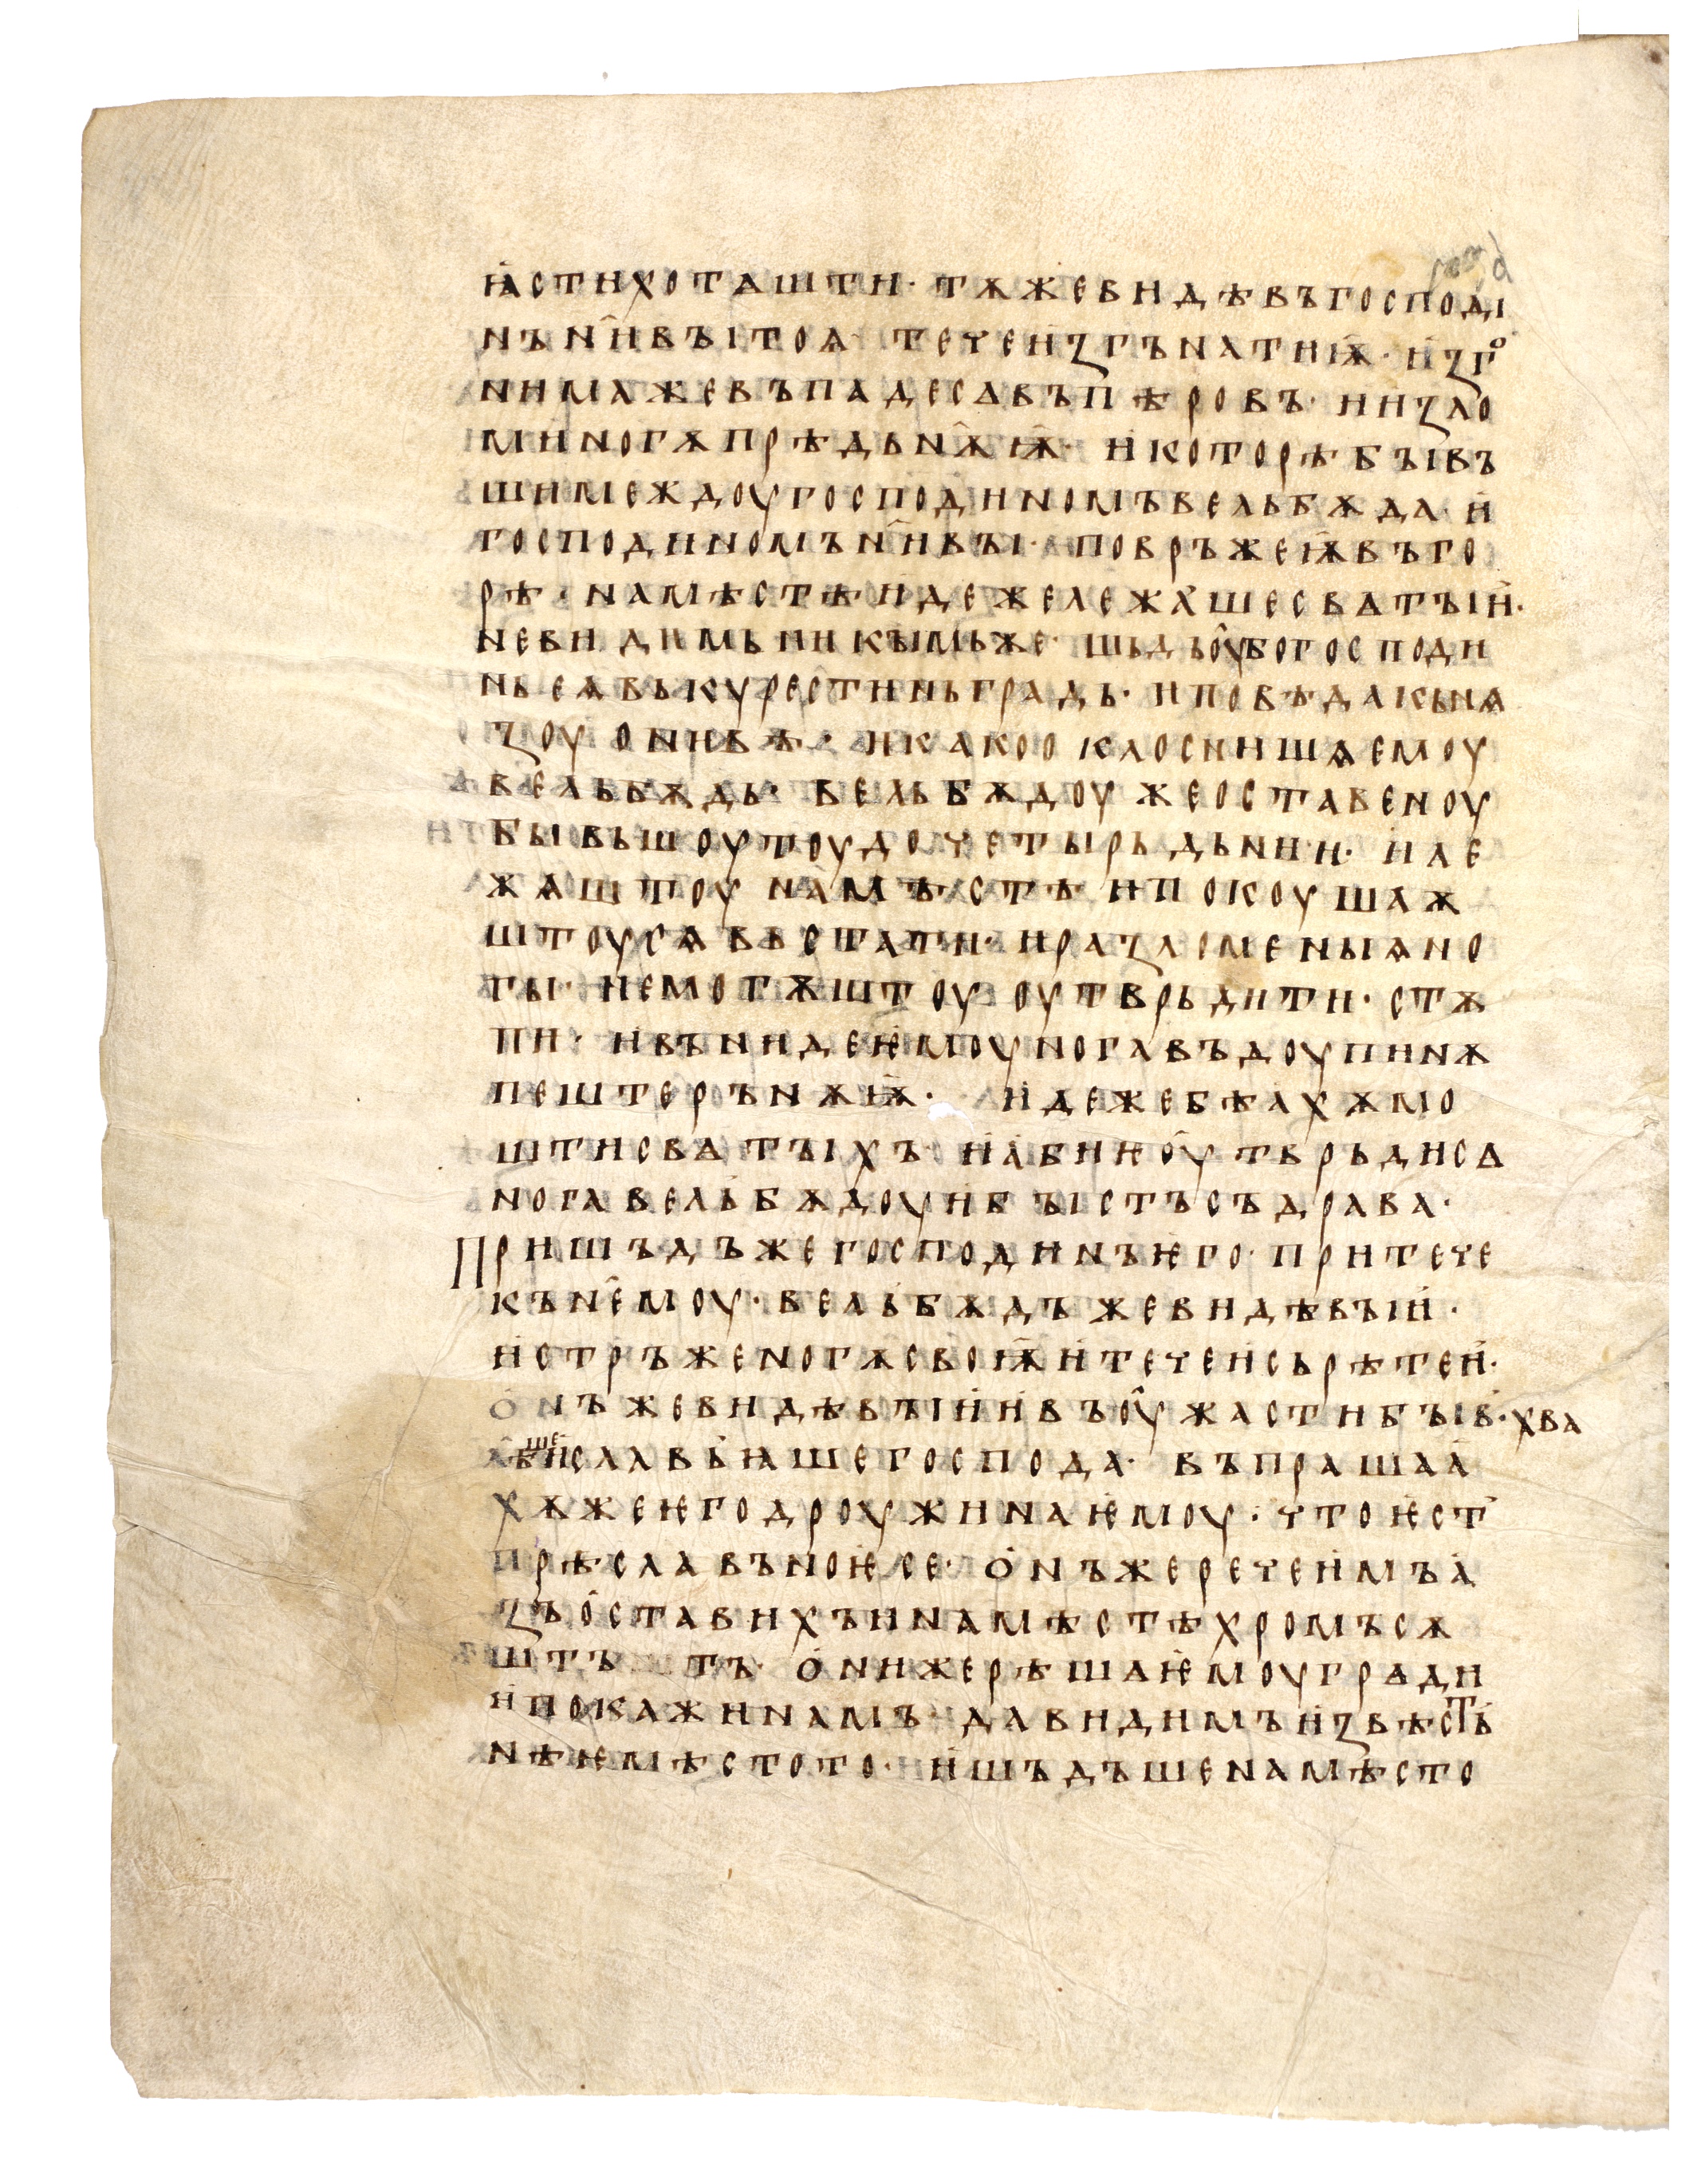 ꙗстихотѧшти· тѫжевидѣвъгосподі
нън҄ивꙑтоѩ· течеизгънатиѭ· изгᲂ
нимажевъпадесѧвъпѣровъ· иизло
миногѫпрѣдьн҄ѫѭ· икоторѣбꙑвъ
шимеждоугосподиномъвельбѫда· и
господиномън҄ивꙑ· повръжеѭвъго
рѣ· намѣстѣидежележѫшесвѧтꙑи·
невидимъникꙑмьже· шьдъоубогосподи
ньеѩвькурестиньградь· иповѣдакьнѧ
зоуонивѣ· икакоо клоснишѧемоу
вельбѫдь· вельбѫдоужеоставеноу
бꙑвъшоутоудочетꙑрьдьнии· иле
жѧштоунамѣстѣипокоушаѭ
штоусѧвьстати· иразломенꙑѩно
гꙑ· немогѫштоуоутврьдити· стѫ
пи· ивъниде҄ѥмоуногавъдоупинѫ
пештерънѫѭ· идежебѣахѫмо
штисвѧтꙑхъ· иабиѥоутврьдисѧ
ногавельбѫдоуибꙑстъсъдрава·
Пришъдъжегосподинъѥго· притече
кън҄емоу· вельбѫдъжевидѣвꙑи·
истръженогѫсвоѭитечеисьрѣтеи·
онъжевидѣвꙑиивъоужастибꙑв· хва
лѣшеиславьꙗшегоспода· въпрашаа
хѫжеѥгодроужинаѥмоу· чтоѥст
прѣславъноѥсе· онъжеречеимъа
зъоставихъинамѣстѣхромъсѫ
штъ тъ· онижерѣшаѥмоугрѧди
ипокажинамъ· давидимъизвѣсть
нѣѥмѣстото· ишъдъшенамѣсто